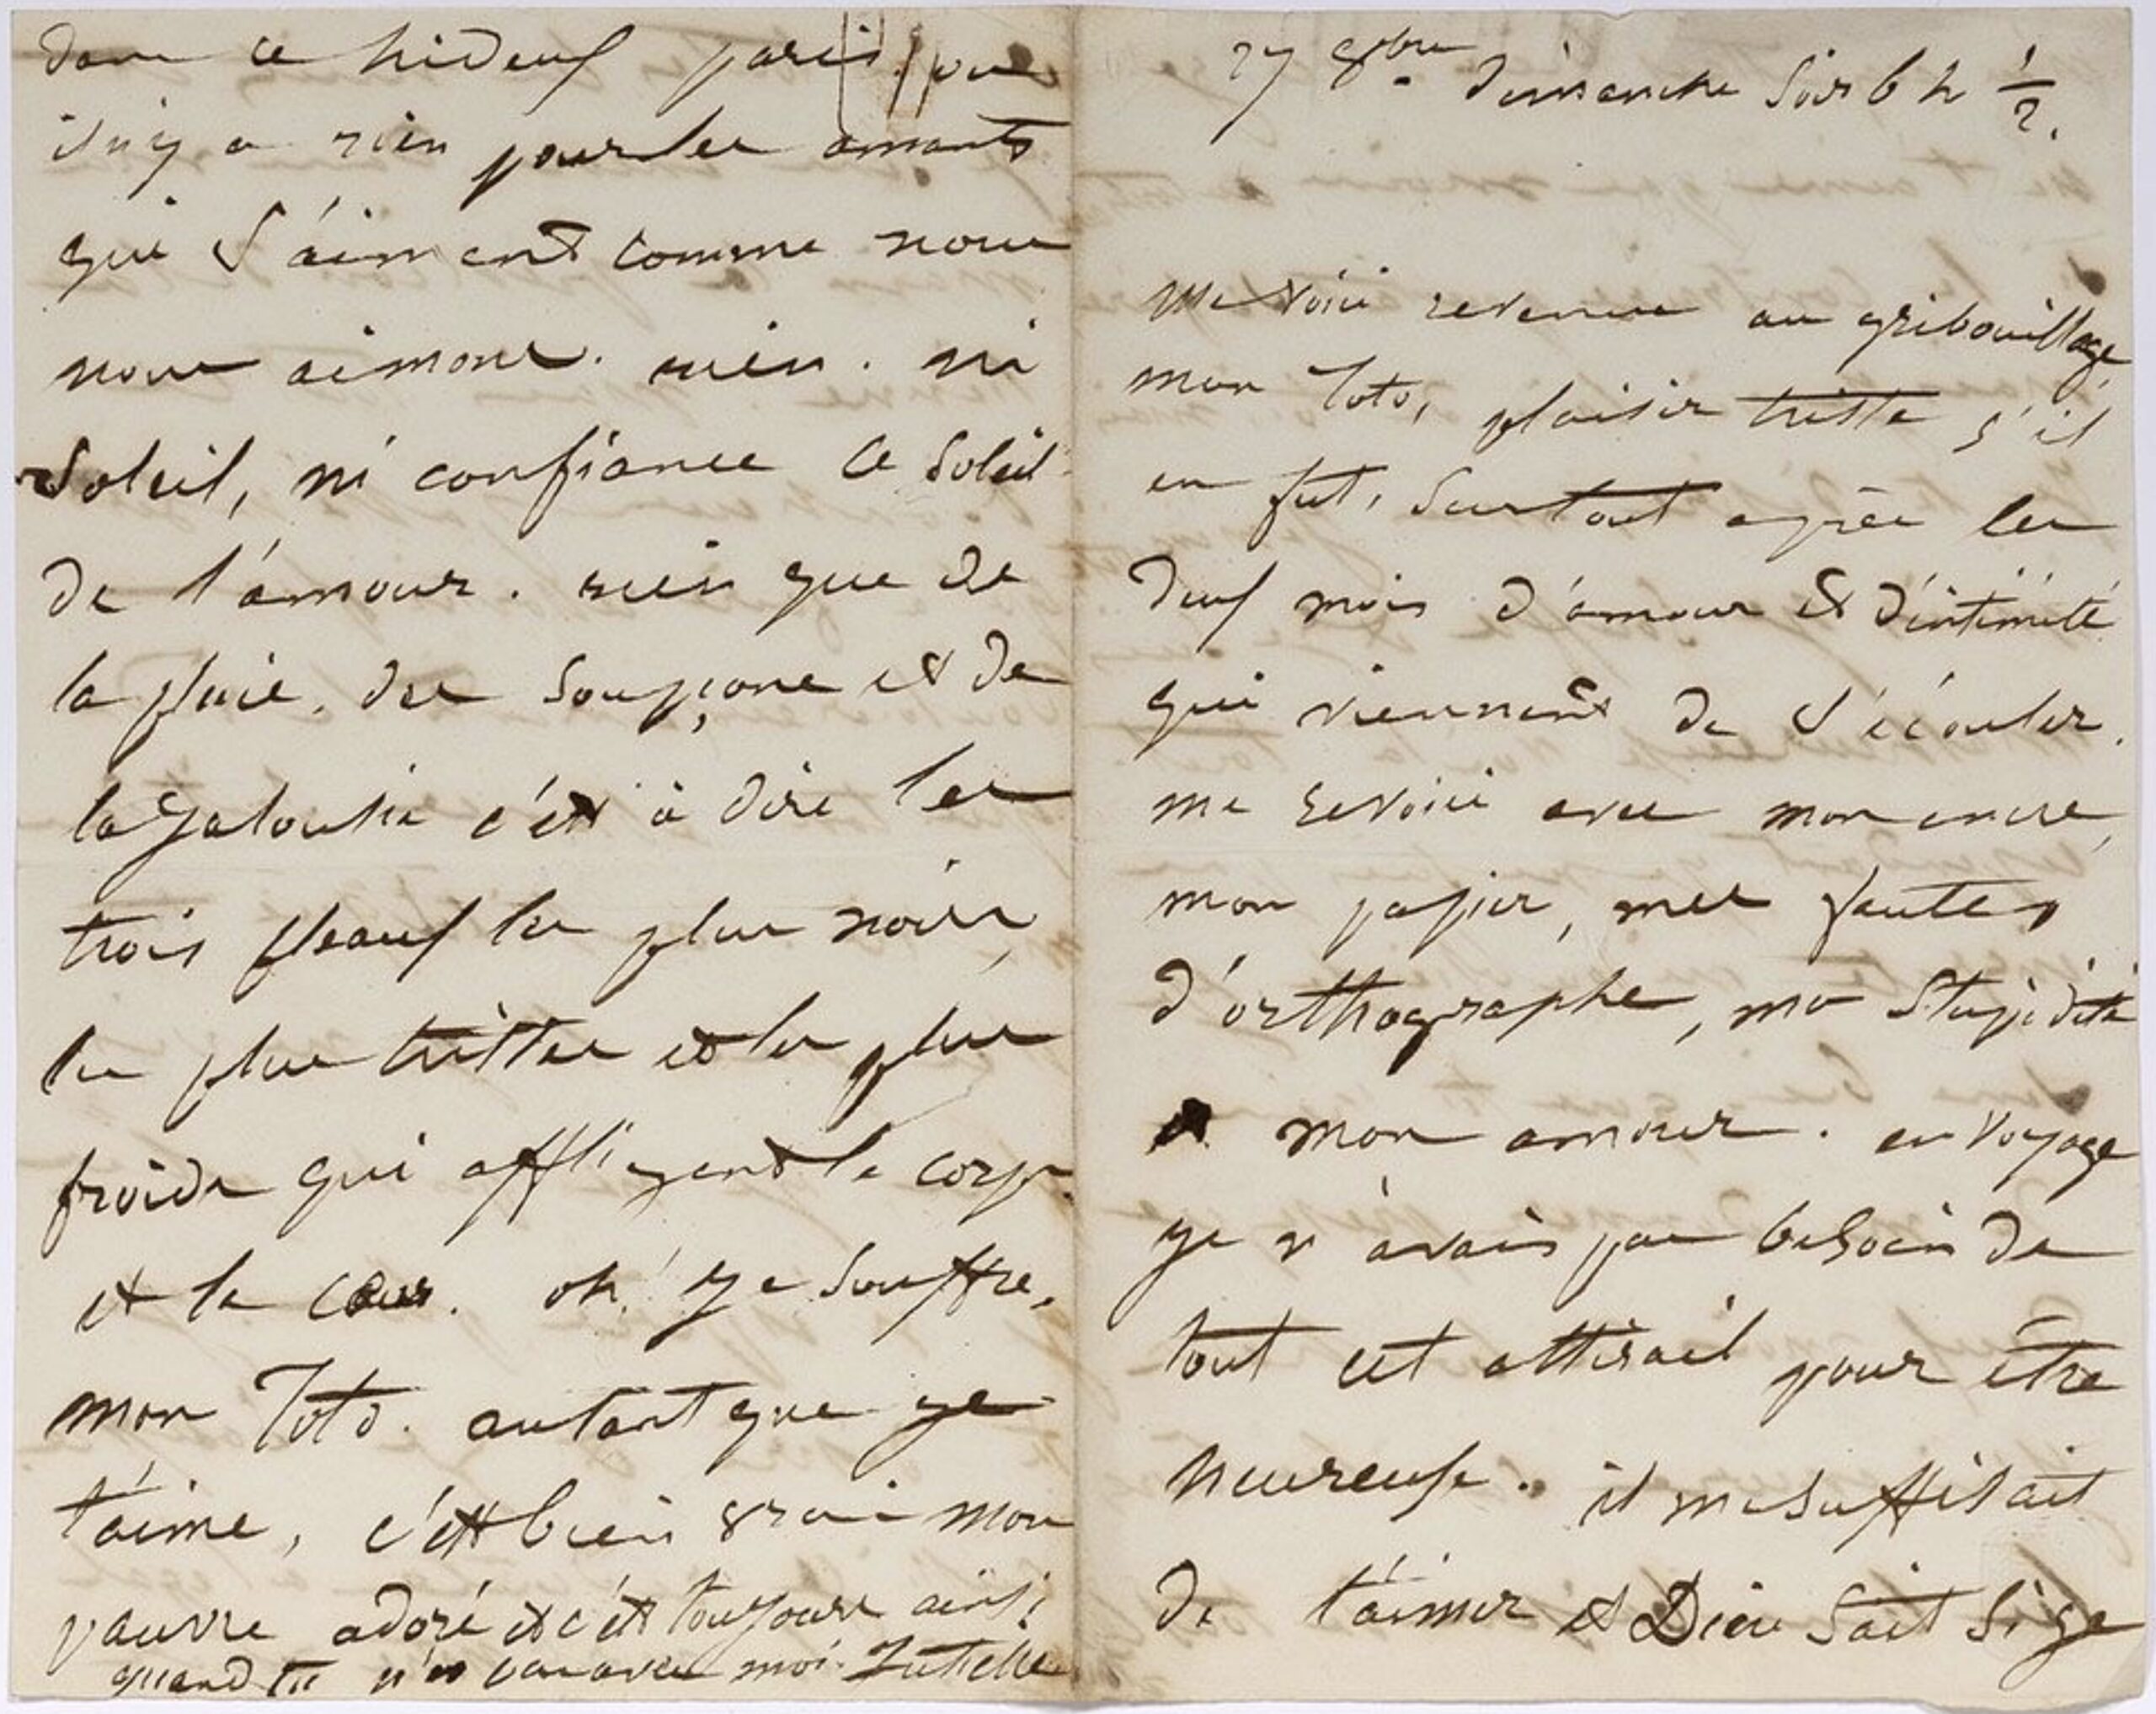 27 8bre Dimanche soir 6 h ½.
me voici revenue au gribouillage,
mon Toto, plaisir triste s'il
en fut, surtout après les
deux mois d'amour et d'intimité
qui viennent de s'écouler.
me revoici avec mon encre,
mon papier, mes fautes
d'orthographe, ma stupidité
et mon amour. en voyage
je n'avais pas besoin de
tout cet attirail pour être
heureuse. il me suffisait
de t'aimer et Dieu sait si je
dans ce hideux paris
il n'y a rien pour les amants
qui s'aiment comme nous
nous aimons. rien. ni
soleil, ni confiance ce soleil
de l'amour. rien que de
la pluie, des soupçons et de
la jalousie c'est à dire les
trois fleaux les plus noirs,
les plus tristes et les plus
froids qui affligent le corps
et le cœur. oh! je souffre,
mon Toto. autant que je
t'aime, c'est bien vrai mon
pauvre adoré et c'est toujours ainsi
quand tu n'es pas avec moi. Juliette